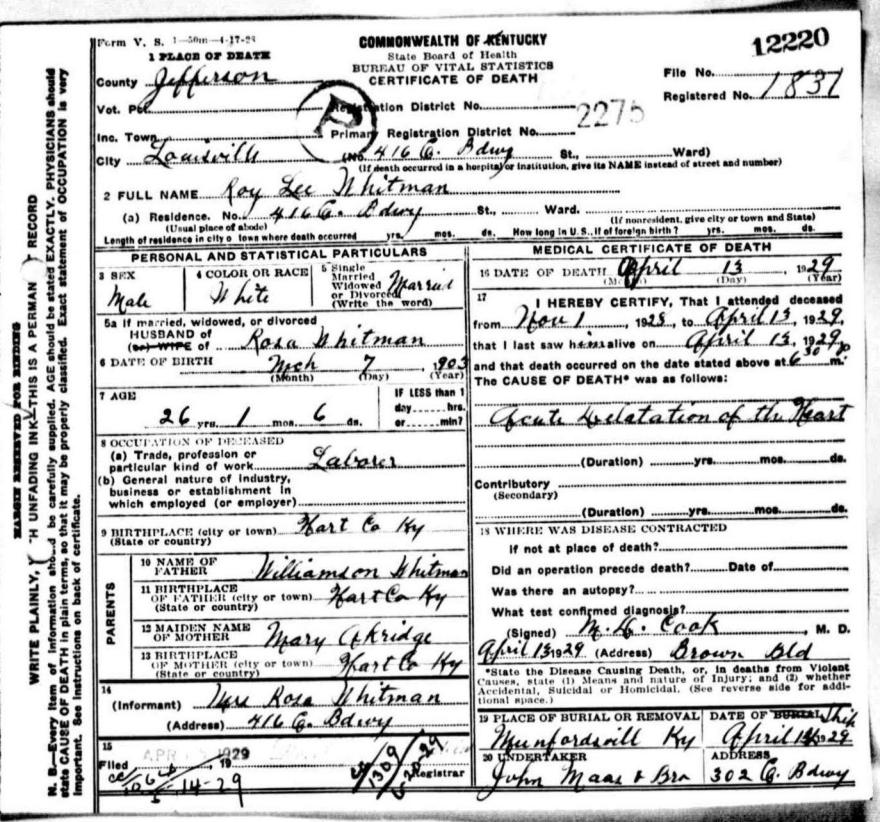 Form V. S. 1-50m-4-17-28
COMMONWEALTH OF KENTUCKY
State Board of Health
BUREAU OF VITAL STATISTICS
CERTIFICATE OF DEATH
12220
1 PLACE OF DEATH
County Jefferson
File No.
Registered No. 1837
Vot. Pct
Registration District No.
2275
Inc. Town
Primary Registration District No.
City Louisville (No. 416 E. Bdwy St., Ward)
(If death occurred in a hospital or institution, give its NAME instead of street and number)
2 FULL NAME Roy Lee Whitman
(a) Residence. No. 416 E. Bdwy St., Ward.
(Usual place of abode) (If nonresident, give city or town and State)
Length of residence in city o town where death occurred yrs. mos. ds. How long in U. S., if of foreign birth? yrs. mos. ds.
PERSONAL AND STATISTICAL PARTICULARS
3 SEX
Male
4 COLOR OR RACE
White
5 Single
Married
Widowed
or Divorced
(Write the word)
Married
5a If married, widowed, or divorced
HUSBAND of
(or) WIFE of Rosa Whitman
6 DATE OF BIRTH Mch 7 1903
(Month) (Day) (Year)
7 AGE
26 yrs. 1 mos. 6 ds.
IF LESS than 1
day hrs.
or min?
8 OCCUPATION OF DECEASED
(a) Trade, profession or
particular kind of work Laborer
(b) General nature of industry,
business or establishment in
which employed (or employer)
9 BIRTHPLACE (city or town) Hart Co Ky
(State or country)
PARENTS
10 NAME OF
FATHER Williamson Whitman
11 BIRTHPLACE
OF FATHER (city or town) Hart Co Ky
(State or country)
12 MAIDEN NAME
OF MOTHER Mary Akridge
13 BIRTHPLACE
OF MOTHER (city or town) Hart Co Ky
(State or country)
14
(Informant) Mrs Rosa Whitman
(Address) 416 E. Bdwy
15
APR 1929
Filed 19
5-14-29
1309
5-20-29
Registrar
MEDICAL CERTIFICATE OF DEATH
16 DATE OF DEATH April 13 1929
(Day) (Year)
17
I HEREBY CERTIFY, That I attended deceased
from Nov 1, 1928, to April 13, 1929,
that I last saw him alive on April 13, 1929
and that death occurred on the date stated above at 6 30 p m.
The CAUSE OF DEATH* was as follows:
Acute Dilatation of the Heart
(Duration) yrs. mos. ds.
Contributory
(Secondary)
(Duration) yrs. mos. ds.
18 WHERE WAS DISEASE CONTRACTED
If not at place of death?
Did an operation precede death? Date of
Was there an autopsy?
What test confirmed diagnosis?
(Signed) M. H. Cook, M. D.
April 13 1929 (Address) Brown Bld
*State the Disease Causing Death, or, in deaths from Violent
Causes, state (1) Means and nature of Injury; and (2) whether
Accidental, Suicidal or Homicidal. (See reverse side for addi-
tional space.)
19 PLACE OF BURIAL OR REMOVAL
Munfordsvill Ky
DATE OF BURIAL Ship
April 1929
20 UNDERTAKER
John Maas & Bro
ADDRESS
302 E. Bdwy
MARGIN RESERVED FOR BINDING
WRITE PLAINLY, TH UNFADING INK—THIS IS A PERMAN RECORD
N. B.—Every item of information should be carefully supplied. AGE should be stated EXACTLY. PHYSICIANS should
state CAUSE OF DEATH in plain terms, so that it may be properly classified. Exact statement of OCCUPATION is very
important. See instructions on back of certificate.